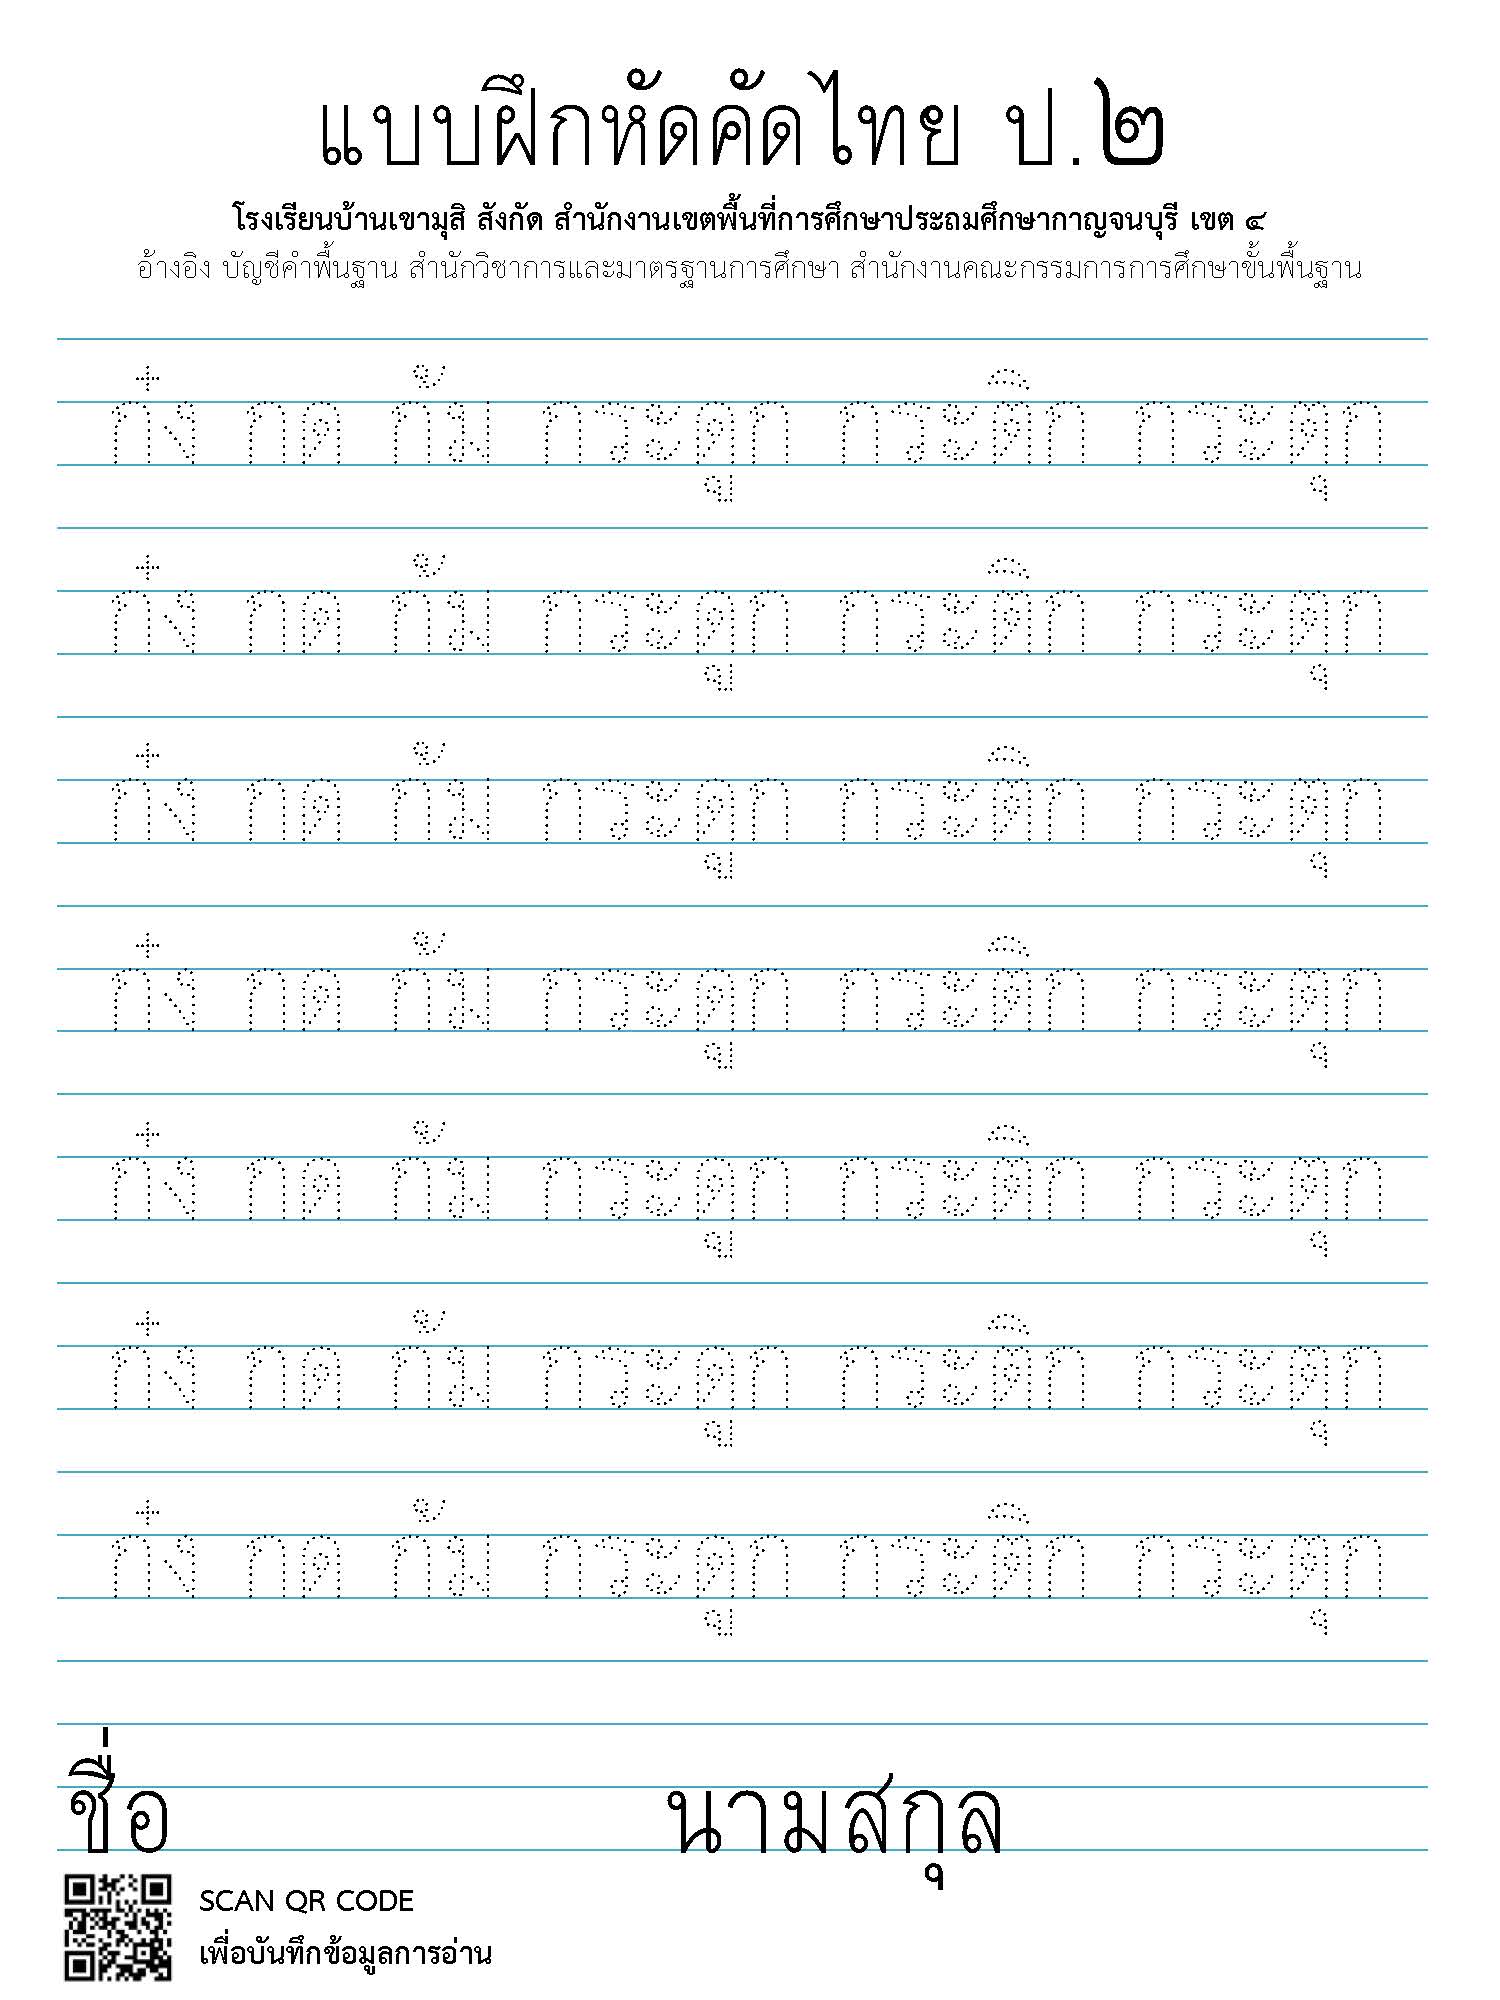 แบบฝึกหัดคัดไทย ป.๒
โรงเรียนบ้านเขามุสิ สังกัด สำนักงานเขตพื้นที่การศึกษาประถมศึกษากาญจนบุรี เขต ๔
อ้างอิง บัญชีคำพื้นฐาน สำนักวิชาการและมาตรฐานการศึกษา สำนักงานคณะกรรมการการศึกษาขั้นพื้นฐาน
ก๋ง กด ก้ม กระดูก กระดิก กระตุก
ก๋ง กด ก้ม กระดูก กระดิก กระตุก
ก๋ง กด ก้ม กระดูก กระดิก กระตุก
ก๋ง กด ก้ม กระดูก กระดิก กระตุก
ก๋ง กด ก้ม กระดูก กระดิก กระตุก
ก๋ง กด ก้ม กระดูก กระดิก กระตุก
ก๋ง กด ก้ม กระดูก กระดิก กระตุก
ชื่อ นามสกุล
SCAN QR CODE
เพื่อบันทึกข้อมูลการอ่าน